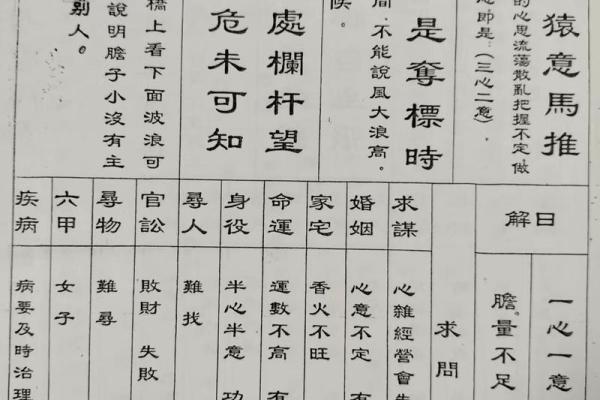 猿意馬推
的心思流蕩散亂把握不定做
心即是：（三心二意）．
是奪標時
間．不能說風大浪高。
候。
處欄杆望
危未可知
橋上看下面波浪可
說明膽子小沒有主
別人。
解日
一心一意
膽量不足
求問
求謀
心雜經營會失
婚姻
心意不定 有
家宅
香火不旺
命運
運數不高 有
身役
半心半意 功
尋人
難找
官訟
敗財 失敗
尋物
難尋
六甲
女子
疾病
病要及時治理